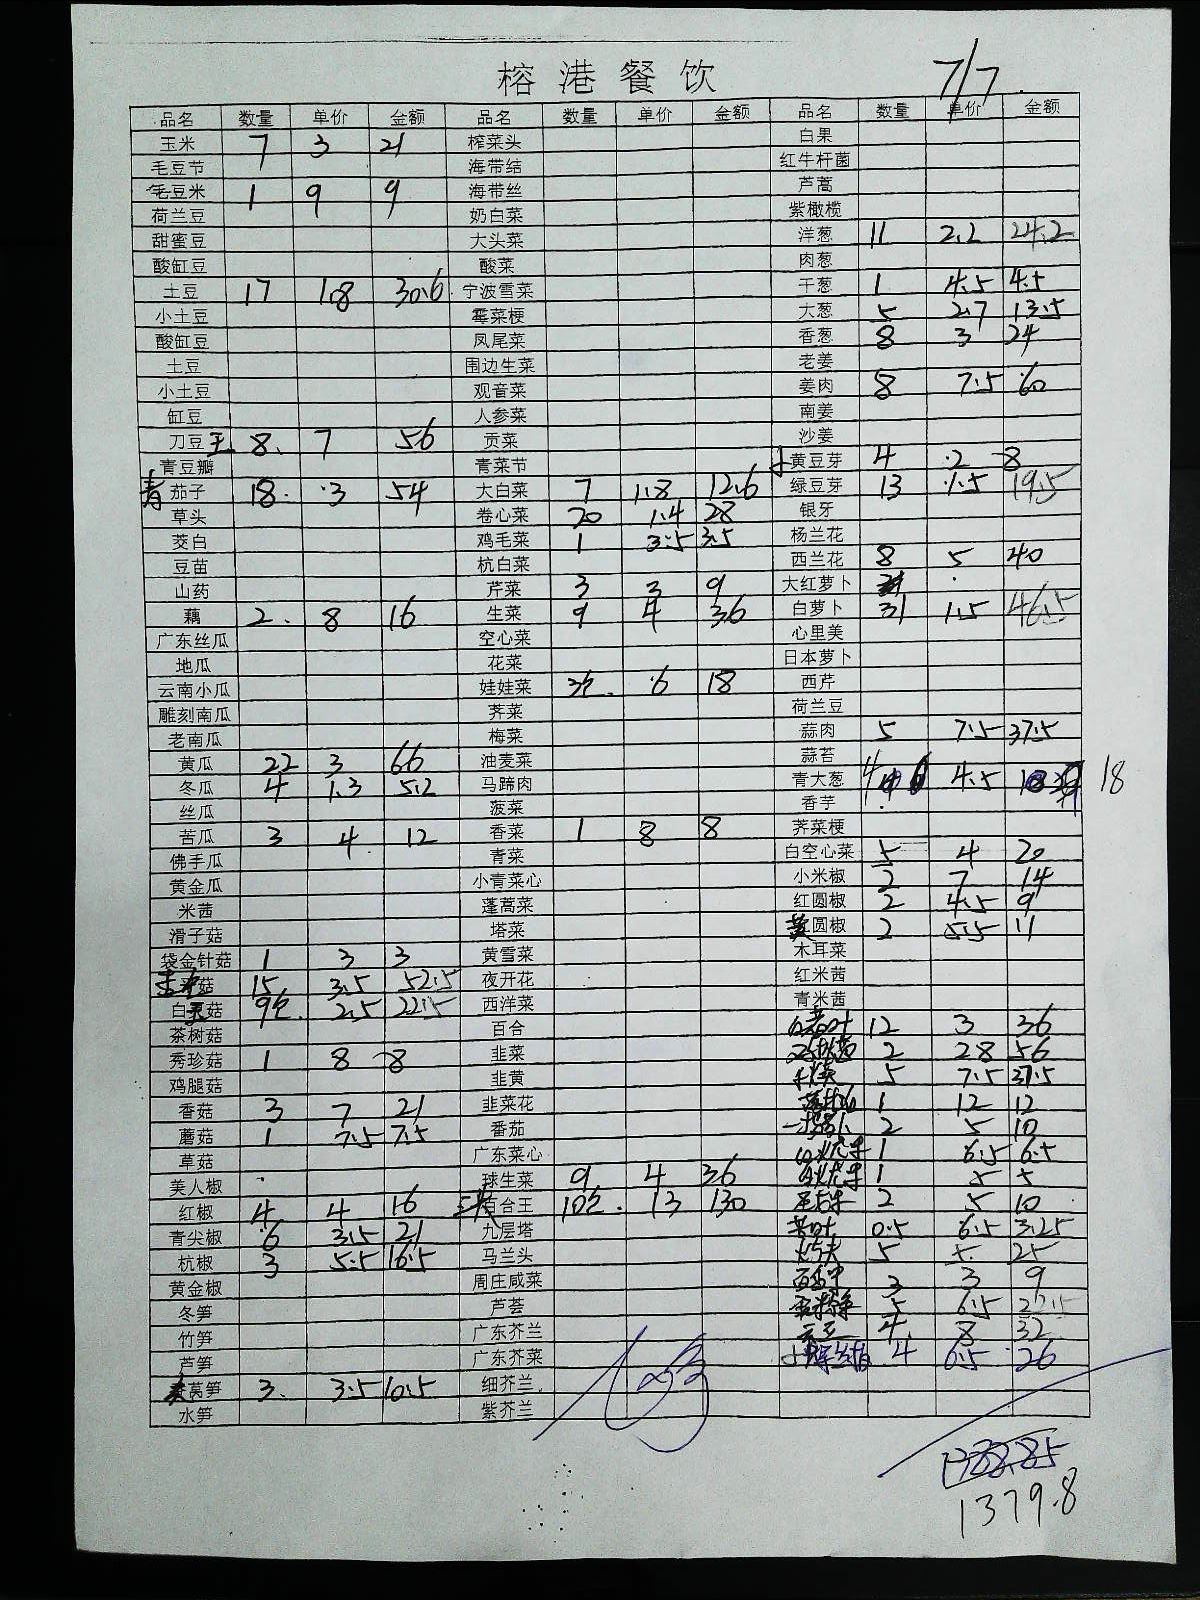 榕港餐饮
7/7
品名 数量 单价 金额 品名 数量 单价 金额 品名 数量 单价 金额
玉米 7 3 21 榨菜头 白果
毛豆节 海带结 红牛杆菌
毛豆米 1 9 9 海带丝 芦蒿
荷兰豆 奶白菜 紫橄榄
甜蜜豆 大头菜 洋葱 11 2.2 24.2
酸缸豆 酸菜 肉葱
土豆 17 1.8 30.6 宁波雪菜 干葱 1 4.5 4.5
小土豆 霉菜梗 大葱 5 2.7 13.5
酸缸豆 凤尾菜 香葱 8 3 24
土豆 围边生菜 老姜
小土豆 观音菜 姜肉 8 7.5 60
缸豆 人参菜 南姜
刀豆王 8 7 56 贡菜 沙姜
青豆瓣 青菜节 黄豆芽 4 2 8
青茄子 18 3 54 大白菜 7 1.8 12.6 绿豆芽 13 1.5 19.5
草头 卷心菜 20 1.4 28 银牙
茭白 鸡毛菜 1 3.5 3.5 杨兰花
豆苗 杭白菜 西兰花 8 5 40
山药 芹菜 3 3 9 大红萝卜
藕 2 8 16 生菜 9 4 36 白萝卜 31 1.5 46.5
广东丝瓜 空心菜 心里美
地瓜 花菜 日本萝卜
云南小瓜 娃娃菜 3包 6 18 西芹
雕刻南瓜 荠菜 荷兰豆
老南瓜 梅菜 蒜肉 5 7.5 37.5
黄瓜 22 3 66 油麦菜 蒜苔
冬瓜 4 1.3 5.2 马蹄肉 青大葱 4 4.5 18
丝瓜 菠菜 香芋
苦瓜 3 4 12 香菜 1 8 8 荠菜梗
佛手瓜 青菜 白空心菜 5 4 20
黄金瓜 小青菜心 小米椒 2 7 14
米茜 蓬蒿菜 红圆椒 2 4.5 9
滑子菇 塔菜 黄圆椒 2 5.5 11
袋金针菇 1 3 3 黄雪菜 木耳菜
菇 15 3.5 52.5 夜开花 红米茜
白灵菇 9包 2.5 22.5 西洋菜 青米茜
茶树菇 百合 12 3 36
秀珍菇 1 8 8 韭菜 2 28 56
鸡腿菇 韭黄 5 7.5 37.5
香菇 3 7 21 韭菜花 1 12 12
蘑菇 1 7.5 7.5 番茄 2 5 10
草菇 广东菜心 1 6.5 6.5
美人椒 球生菜 9 4 36 1 5 5
红椒 4 4 16 百合王 10包 13 130 2 5 10
青尖椒 6 3.5 21 九层塔 0.5 6.5 3.25
杭椒 3 5.5 16.5 马兰头 5 5 25
黄金椒 周庄咸菜 3 3 9
冬笋 芦荟 5 6.5 22.5
竹笋 广东芥兰 4 8 32
芦笋 广东芥菜 4 6.5 26
莴笋 3 3.5 10.5 细芥兰
水笋 紫芥兰
1379.8